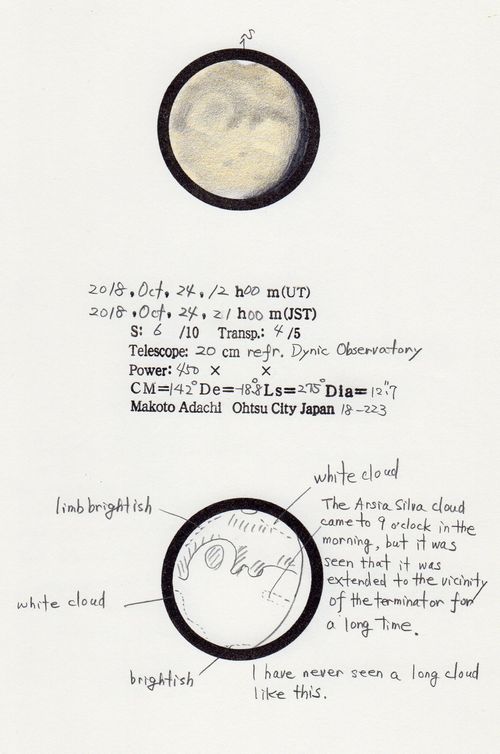 S
2018, Oct, 24, 12 h00 m(UT)
2018, Oct, 24, 21 h00 m(JST)
S: 6 /10 Transp.: 4 /5
Telescope: 20 cm refr. Dynic Observatory
Power: 450 × ×
CM=142° De=-18.8° Ls=275° Dia=12."7
Makoto Adachi Ohtsu City Japan 18-223
white cloud
limb brightish
The Arsia Silva cloud
came to 9 o'clock in the
morning, but it was
seen that it was
extended to the vicinity
of the terminator for
a long time.
white cloud
brightish
I have never seen a long cloud
like this.